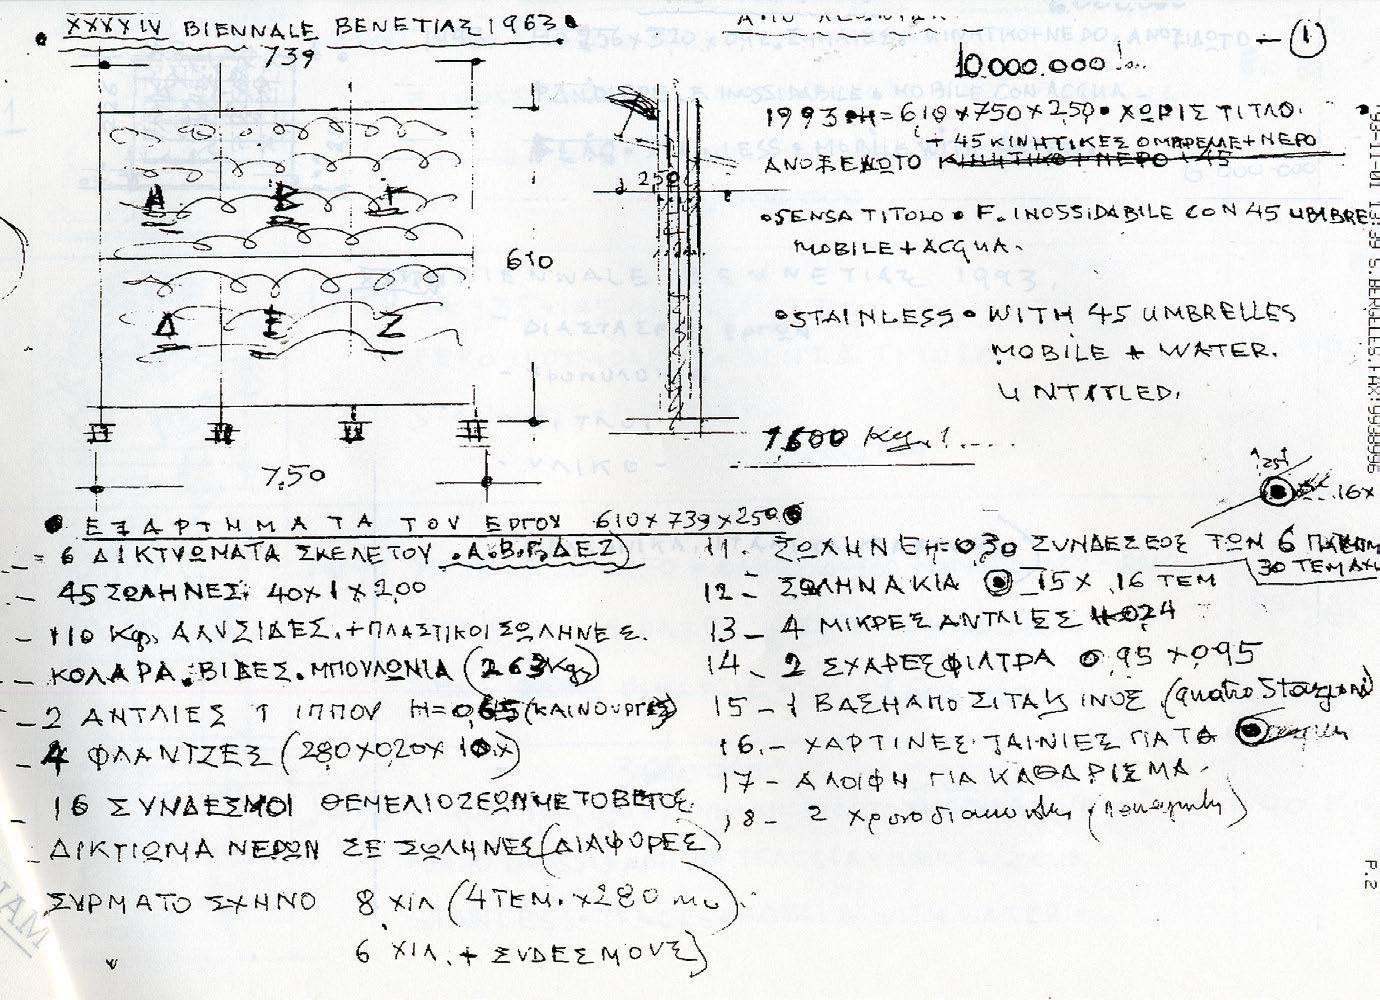 XXXXIV BIENNALE ΒΕΝΕΤΙΑΣ 1963
1
739
10.000.000
1993 H=610x750x250 • ΧΩΡΙΣ ΤΙΤΛΟ.
+ 45 ΚΙΝΗΤΙΚΕΣ ΟΜΠΡΕΛΕ+ΝΕΡΟ
ΑΝΟΞΕΙΔΩΤΟ ΚΙΝΗΤΙΚΟ+ΝΕΡΟ +45
250
Α Β Γ
• SENSA TITOLO • F. INOSSIDABILE CON 45 UMBRE
MOBILE + ACQUA.
610
Δ Ε Ζ
• STAINLESS • WITH 45 UMBRELLES
MOBILE + WATER.
UNTITLED.
1600 Kg.!....
7,50
25
16x
• ΕΞΑΡΤΗΜΑΤΑ ΤΟΥ ΕΡΓΟΥ 610x739x250 •
= 6 ΔΙΚΤΥΩΜΑΤΑ ΣΚΕΛΕΤΟΥ .Α.Β.Γ.ΔΕΖ)
- 45 ΣΩΛΗΝΕΣ: 40x1x2,00
- 110 Kg. ΑΛΥΣΙΔΕΣ.+ΠΛΑΣΤΙΚΟΙ ΣΩΛΗΝΕΣ.
- ΚΟΛΑΡΑ. ΒΙΔΕΣ. ΜΠΟΥΛΩΝΙΑ (263 Kg)
- 2 ΑΝΤΛΙΕΣ 1 ΙΠΠΟΥ H=0,65 (ΚΑΙΝΟΥΡΓΙΕΣ)
- 4 ΦΛΑΝΤΖΕΣ (280x020x10x)
- 16 ΣΥΝΔΕΣΜΟΙ ΘΕΜΕΛΙΟΣΕΩΝ ΜΕ ΤΟ ΒΕΤΟΣ
- ΔΙΚΤΙΩΜΑ ΝΕΡΩΝ ΣΕ ΣΩΛΗΝΕΣ (ΔΙΑΦΟΡΕΣ)
- ΣΥΡΜΑΤΟΣΧΗΝΟ 8 ΧΙΛ (4 ΤΕΜ. x 280 ...)
6 ΧΙΛ. + ΣΥΔΕΣΜΟΥΣ)
11. ΣΩΛΗΝΕ H=030 ΣΥΝΔΕΣΕΟΣ ΤΩΝ 6
30 ΤΕΜΑΧ
12 - ΣΩΛΗΝΑΚΙΑ 15x 16 ΤΕΜ
13 - 4 ΜΙΚΡΕΣ ΑΝΤΛΙΕΣ H=024
14 - 2 ΣΧΑΡΕΣ ΦΙΛΤΡΑ 0,95x095
15 - 1 ΒΑΣΗ ΑΠΟ ΣΙΤΑ (quatro Stagioni)
16. - ΧΑΡΤΙΝΕΣ ΤΑΙΝΙΕΣ ΓΙΑ ΤΑ
17 - ΑΛΟΙΦΗ ΓΙΑ ΚΑΘΑΡΙΣΜΑ.
18 - 2 χρονοδιακοπτες
93-11-01 13:39 S.BERGELES FAX:9938996
P.2